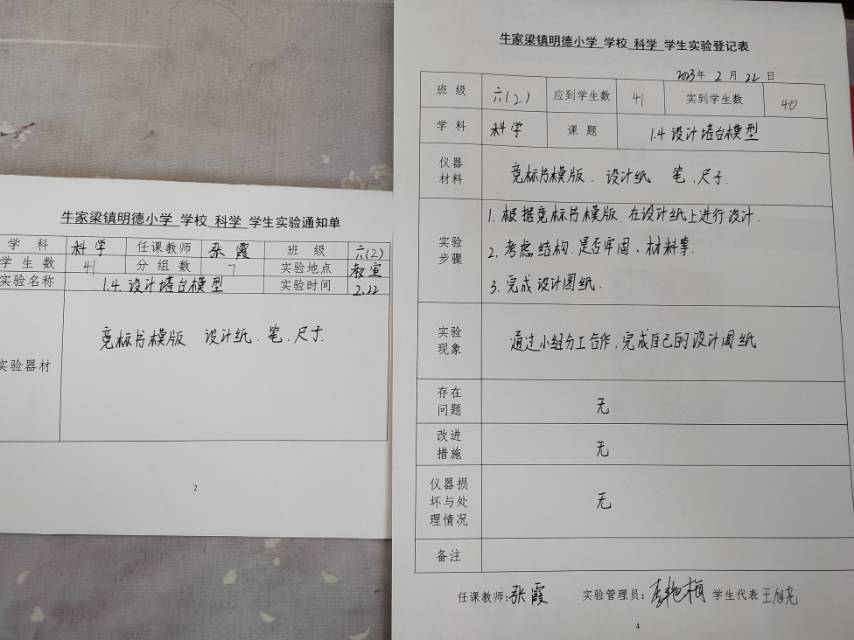 牛家梁镇明德小学 学校 科学 学生实验通知单
学 科 科学 任课教师 张霞 班 级 六(2)
学 生 数 41 分 组 数 7 实验地点 教室
实验名称 1.4.设计塔台模型 实验时间 2.22
实验器材 竞标书模版 设计纸.笔.尺子.
2
牛家梁镇明德小学 学校 科学 学生实验登记表
2023年 2 月 22 日
班 级 六(2) 应到学生数 41 实到学生数 40
学 科 科学 课 题 1.4设计塔台模型
仪器
材料
竞标书模版. 设计纸 笔.尺子.
实验
步骤
1.根据竞标书模版.在设计纸上进行设计.
2.考虑结构.是否牢固、材料等.
3.完成设计图纸.
实验
现象
通过小组分工合作,完成自己的设计图纸
存在
问题
无
改进
措施
无
仪器损
坏与处
理情况
无
备注
任课教师:张霞 实验管理员: 学生代表
4